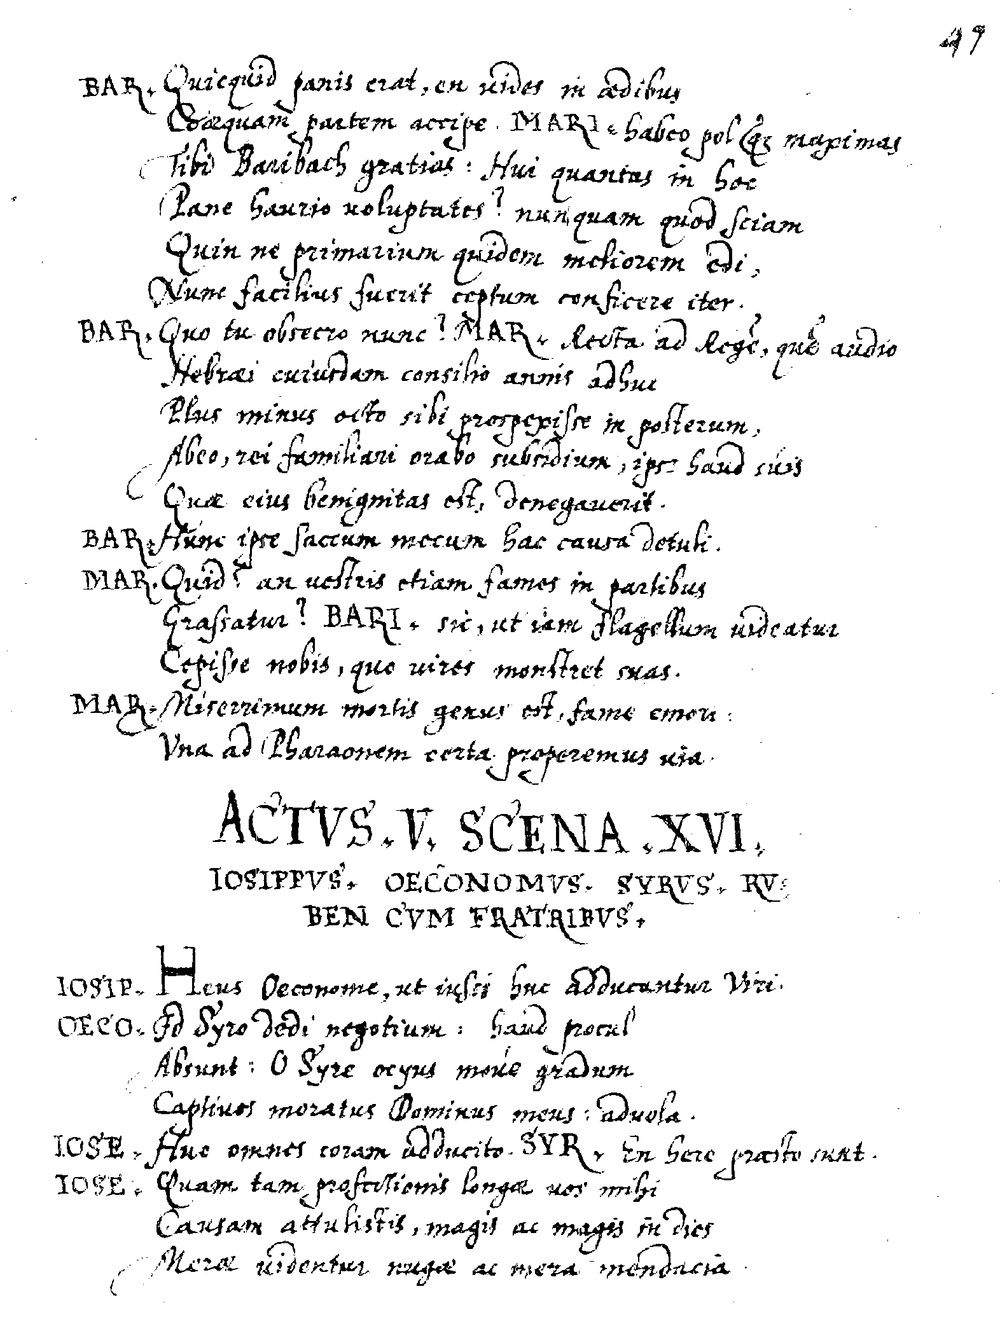 49
BAR. Quicquid panis erat, en uides in ædibus
Coæquam partem accipe. MARI. habeo pol maximas
Tibi Baribach gratias: Hui quantas in hoc
Pane haurio uoluptates? nunquam quod sciam
Quin ne primarium quidem meliorem edi,
Nunc facilius fuerit ceptum conficere iter.
BAR. Quo tu obsecro nunc? MAR. Recta ad Regē, quē audio
Hebræi cuiusdam consilio annis adhuc
Plus minus octo sibi prospexisse in posterum,
Abeo, rei familiari orabo subsidium, ipse haud suis
Quæ eius benignitas est, denegauerit.
BAR. Hunc ipse saccum mecum hac causa detuli.
MAR. Quid? an uestris etiam fames in partibus
Grassatur? BARI. sic, ut iam flagellum uideatur
Cepisse nobis, quo uires monstret suas.
MAR. Miserrimum mortis genus est, fame emori:
Vna ad Pharaonem certa properemus uia.
ACTVS. V. SCENA. XVI.
IOSIPPVS. OECONOMVS. SYRVS. RV:
BEN CVM FRATRIBVS.
IOSIP. Heus Oeconome, ut iussi huc adducantur Viri.
OECO. Id Syro dedi negotium: haud procul
Absunt: O Syre ocyus moue gradum
Captiuos moratus Dominus meus: aduola.
IOSE. Huc omnes coram adducito. SYR. En here præsto sunt.
IOSE. Quam tam profectionis longæ uos mihi
Causam attulistis, magis ac magis in dies
Meræ uidentur nugæ ac mera mendacia